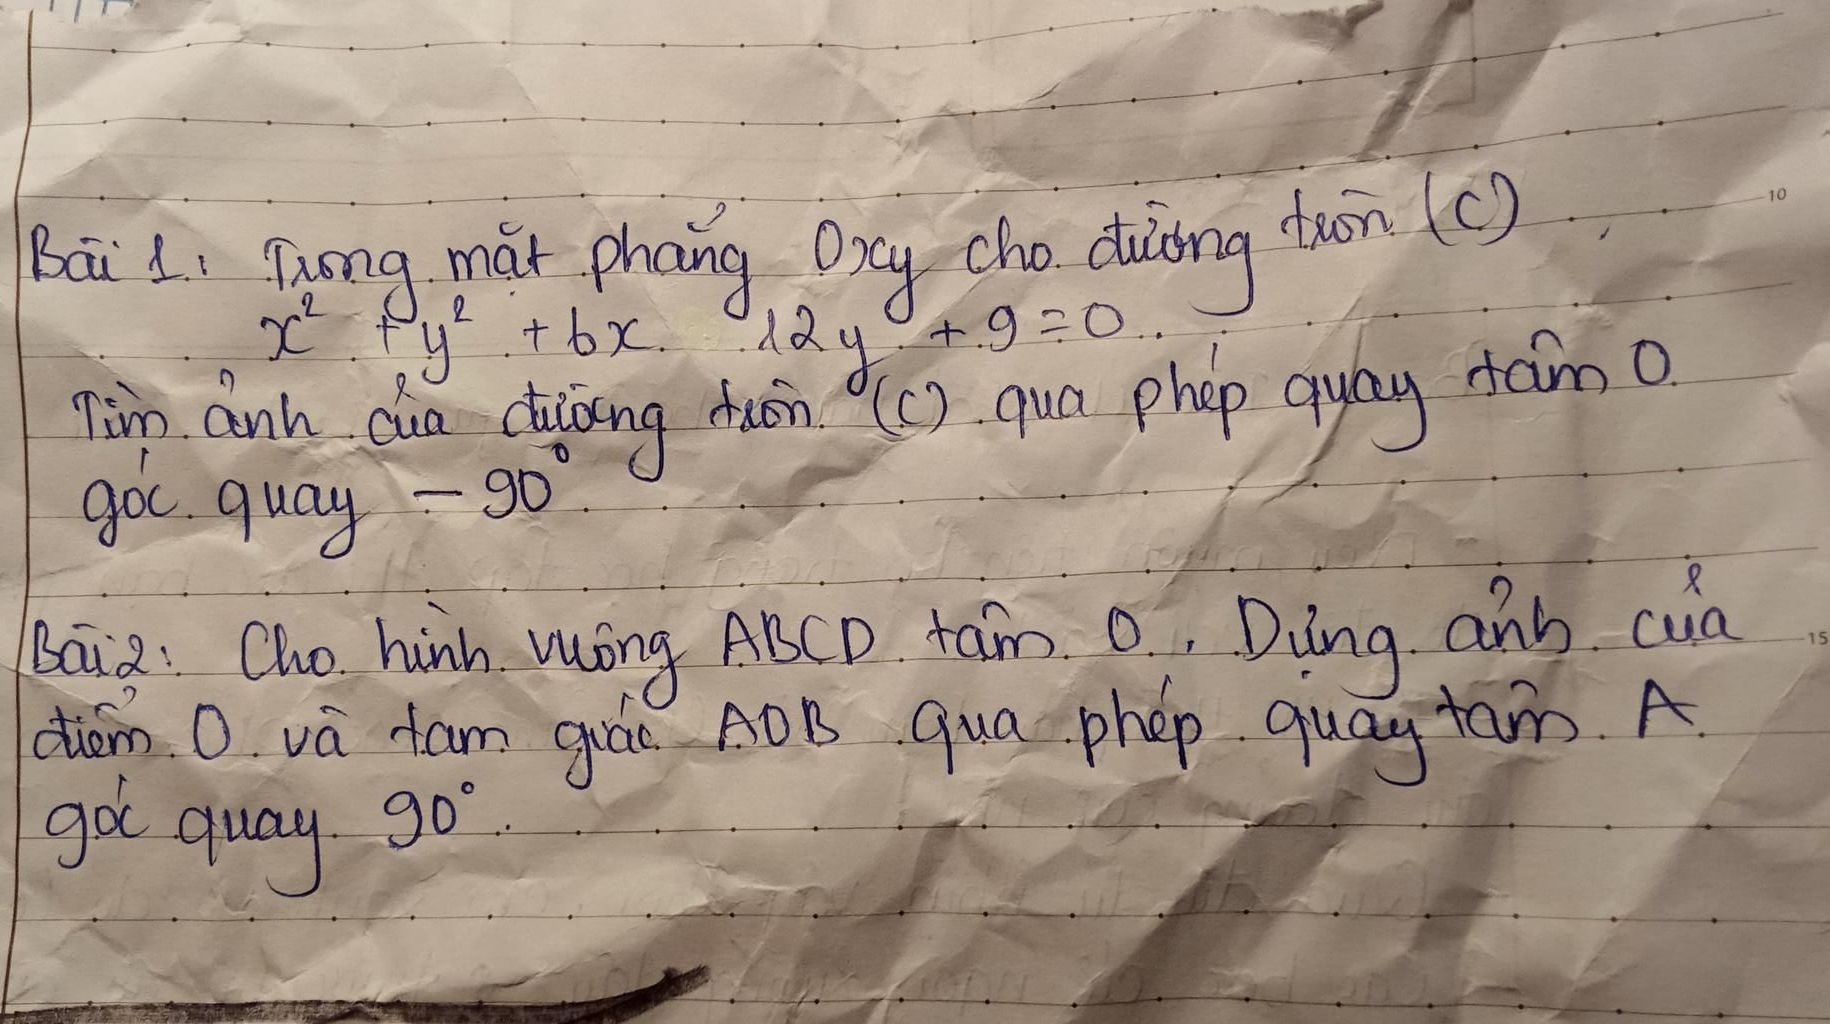 Bài 1: Trong mặt phẳng Oxy cho đường tròn (C)
x² + y² + 6x 12y + 9 = 0
Tìm ảnh của đường tròn (C) qua phép quay tâm O
góc quay - 90°
Bài 2: Cho hình vuông ABCD tâm O. Dựng ảnh của
điểm O và tam giác AOB qua phép quay tâm A
góc quay 90°.
10
15